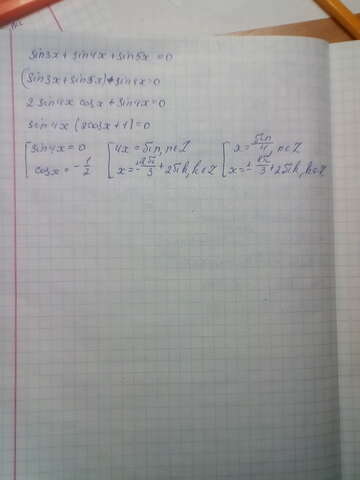 sin3x + sin4x + sin5x = 0
(sin3x + sin5x) + sin4x = 0
2 sin4x cosx + sin4x = 0
sin4x (2cosx + 1) = 0
[ sin4x = 0 [ 4x = πn, n ∈ Z [ x = πn/4, n ∈ Z
cosx = -1/2 x = ± 2π/3 + 2πk, k ∈ Z x = ± 2π/3 + 2πk, k ∈ Z